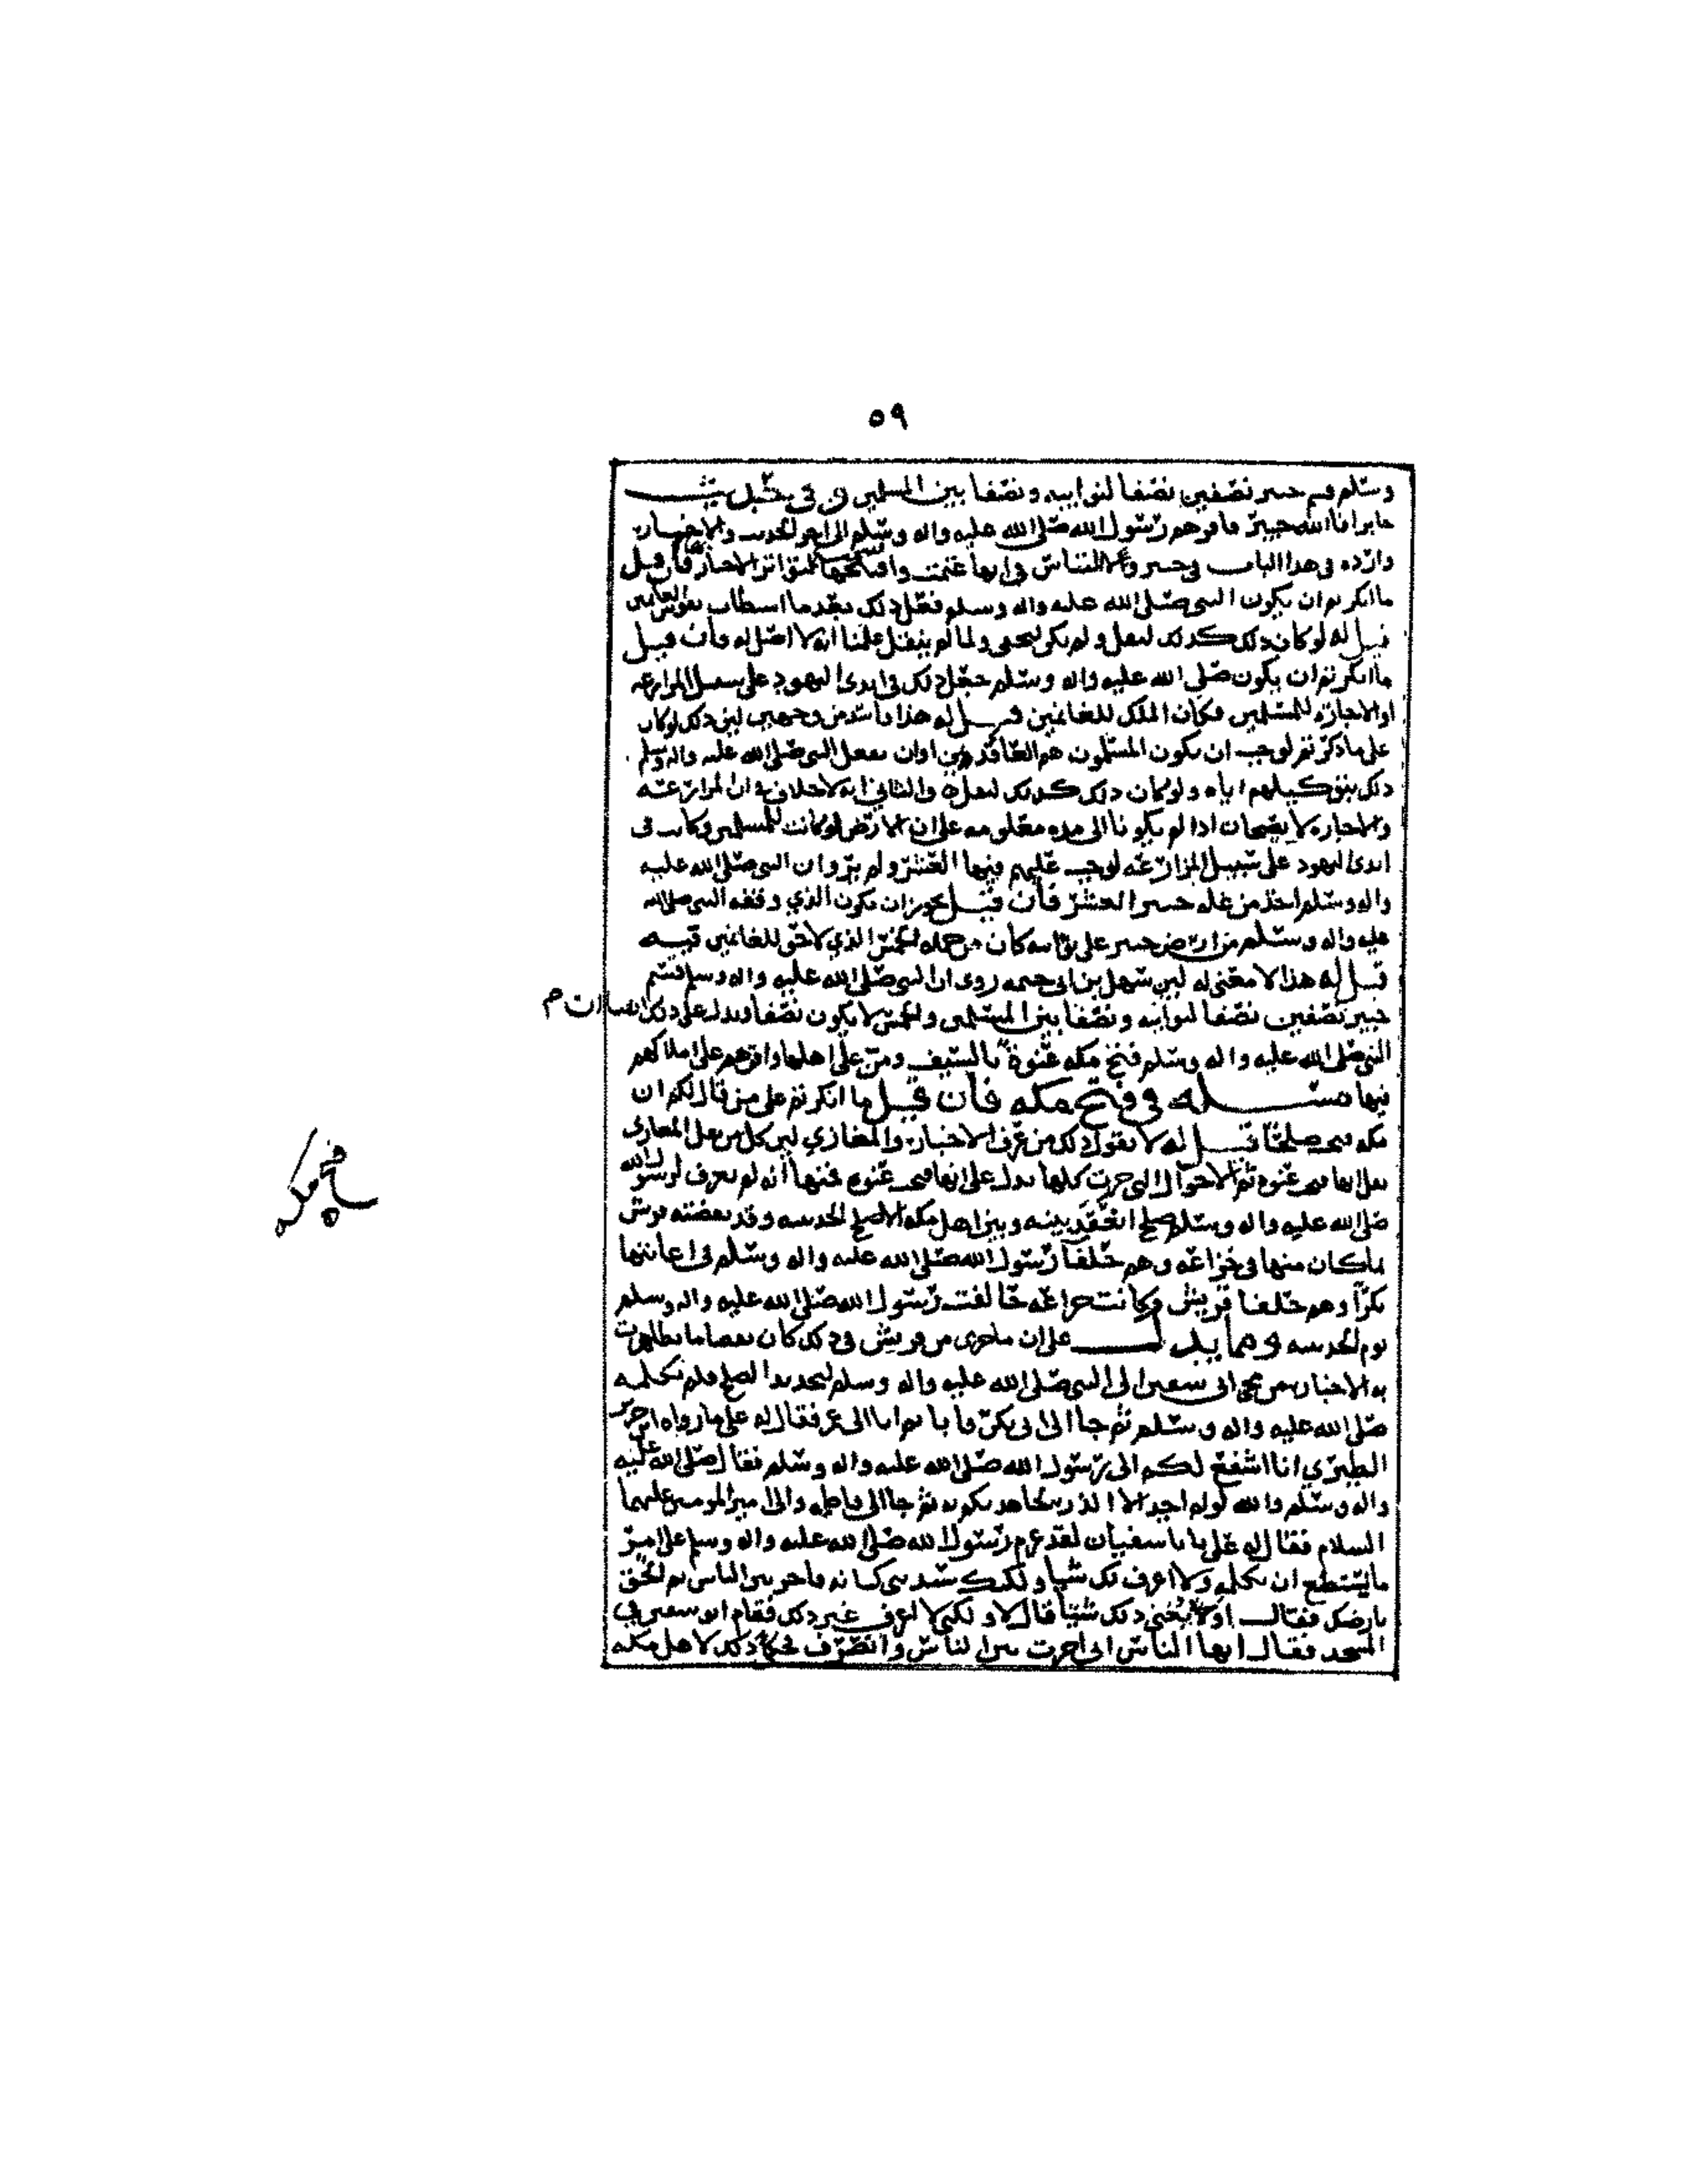 ٥٩
وسلم قسم خيبر نصفين نصفا لنوايبه ونصفا بين المسلمين وفي حديث
جابر افاالله خيبر فاقرهم رسول الله صلى الله عليه واله وسلم الى اخر الحديث والاخبار
وارده في هذا الباب في خيبر ولا التباس في انها غنمت وافتتحها لتواتر الاخبار فان قيل
ما انكرتم ان يكون النبي صلى الله عليه واله وسلم فعل ذلك بعد ما استطاب نفوس الغانمين
قيل له لو كان ذلك كذلك لنقل ولم يكن ليخفى ولما لم ينقل علمنا انه لا اصل له فان قيل
ما انكرتم ان يكون صلى الله عليه واله وسلم جعل ذلك في ايدي اليهود على سبيل المزارعه
او الاجازه للمسلمين فكان الملك للغانمين قيل له هذا فاسد من وجهين لين ذلك لو كان
على ما ذكرتم لوجب ان يكون المسلمون هم العاقدين اوان يفعل النبي صلى الله عليه واله وسلم
ذلك بتوكيلهم اياه ولو كان ذلك كذلك لنقل والثاني انه لا خلاف في ان المزارعه
والاجاره لا يصحان اذا لم يكونا الى مده معلومه على ان الارض لو كانت للمسلمين وكانت في
ايدي اليهود على سبيل المزارعه لوجب عليهم فيها العشر ولم يرو ان النبي صلى الله عليه
واله وسلم اخذ من غله خيبر العشر فان قيل يجوز ان يكون الذي وقفه النبي صلى الله
عليه واله وسلم من ارض خيبر على نوايبه كان من جمله الخمس الذي لا حق للغانمين فيه
قيل له هذا لا معنى له لين سهل بن ابي حثمه روى ان النبي صلى الله عليه واله وسلم قسم
خيبر نصفين نصفا لنوايبه ونصفا بين المسلمين والخمس لا يكون نصفا ويدل على ذلك ايضا ان
النبي صلى الله عليه واله وسلم فتح مكه عنوة بالسيف ومن على اهلها واقرهم على املاكهم
فيها مسئله في فتح مكه فان قيل ما انكرتم على من قال لكم ان
مكه فتحت صلحا قيل له لا يقول ذلك من عرف الاخبار والمغازي لين كل من نقل المغازي
نقل انها فتحت عنوه ثم الاحوال التي جرت كلها يدل على انها فتحت عنوه فمنها انه لم يعرف لرسول الله
صلى الله عليه واله وسلم صلح انعقد بينه وبين اهل مكه الا صلح الحديبيه وقد نقضته قريش
بما كان منها في خزاعه وهم حلفا رسول الله صلى الله عليه واله وسلم في اعانتها
بكرا وهم حلفا قريش وكانت خزاعه حالفت رسول الله صلى الله عليه واله وسلم
يوم الحديبيه ومما يدل على ان ما جرى من قريش في ذلك كان نقضا ما تظاهرت
به الاخبار من مجي ابي سفين الى النبي صلى الله عليه واله وسلم ليجدد الصلح فلم يكلمه
صلى الله عليه واله وسلم ثم جا الى ابي بكر فابا ثم اتى الى عمر فقال له على ما رواه ابن جرير
الطبري انا اشفع لكم الى رسول الله صلى الله عليه واله وسلم فقال صلى الله عليه
واله وسلم والله لو لم اجد الا الذر لجاهدتكم به ثم جا الى فاطمه والى امير المومنين عليهما
السلام فقال له علي يا با سفيان لقد عزم رسول الله صلى الله عليه واله وسلم على امر
ما نستطيع ان نكلمه ولا اعرف لك شيا ولكنك سيد بني كنانه فاجر بين الناس ثم الحق
بارضك فقال او يغني ذلك شيا قال لا ولكني لا اعرف غير ذلك فقام ابو سفين في
المسجد فقال ايها الناس اني اجرت بين الناس وانصرف ذلك لاهل مكه
فتح مكه